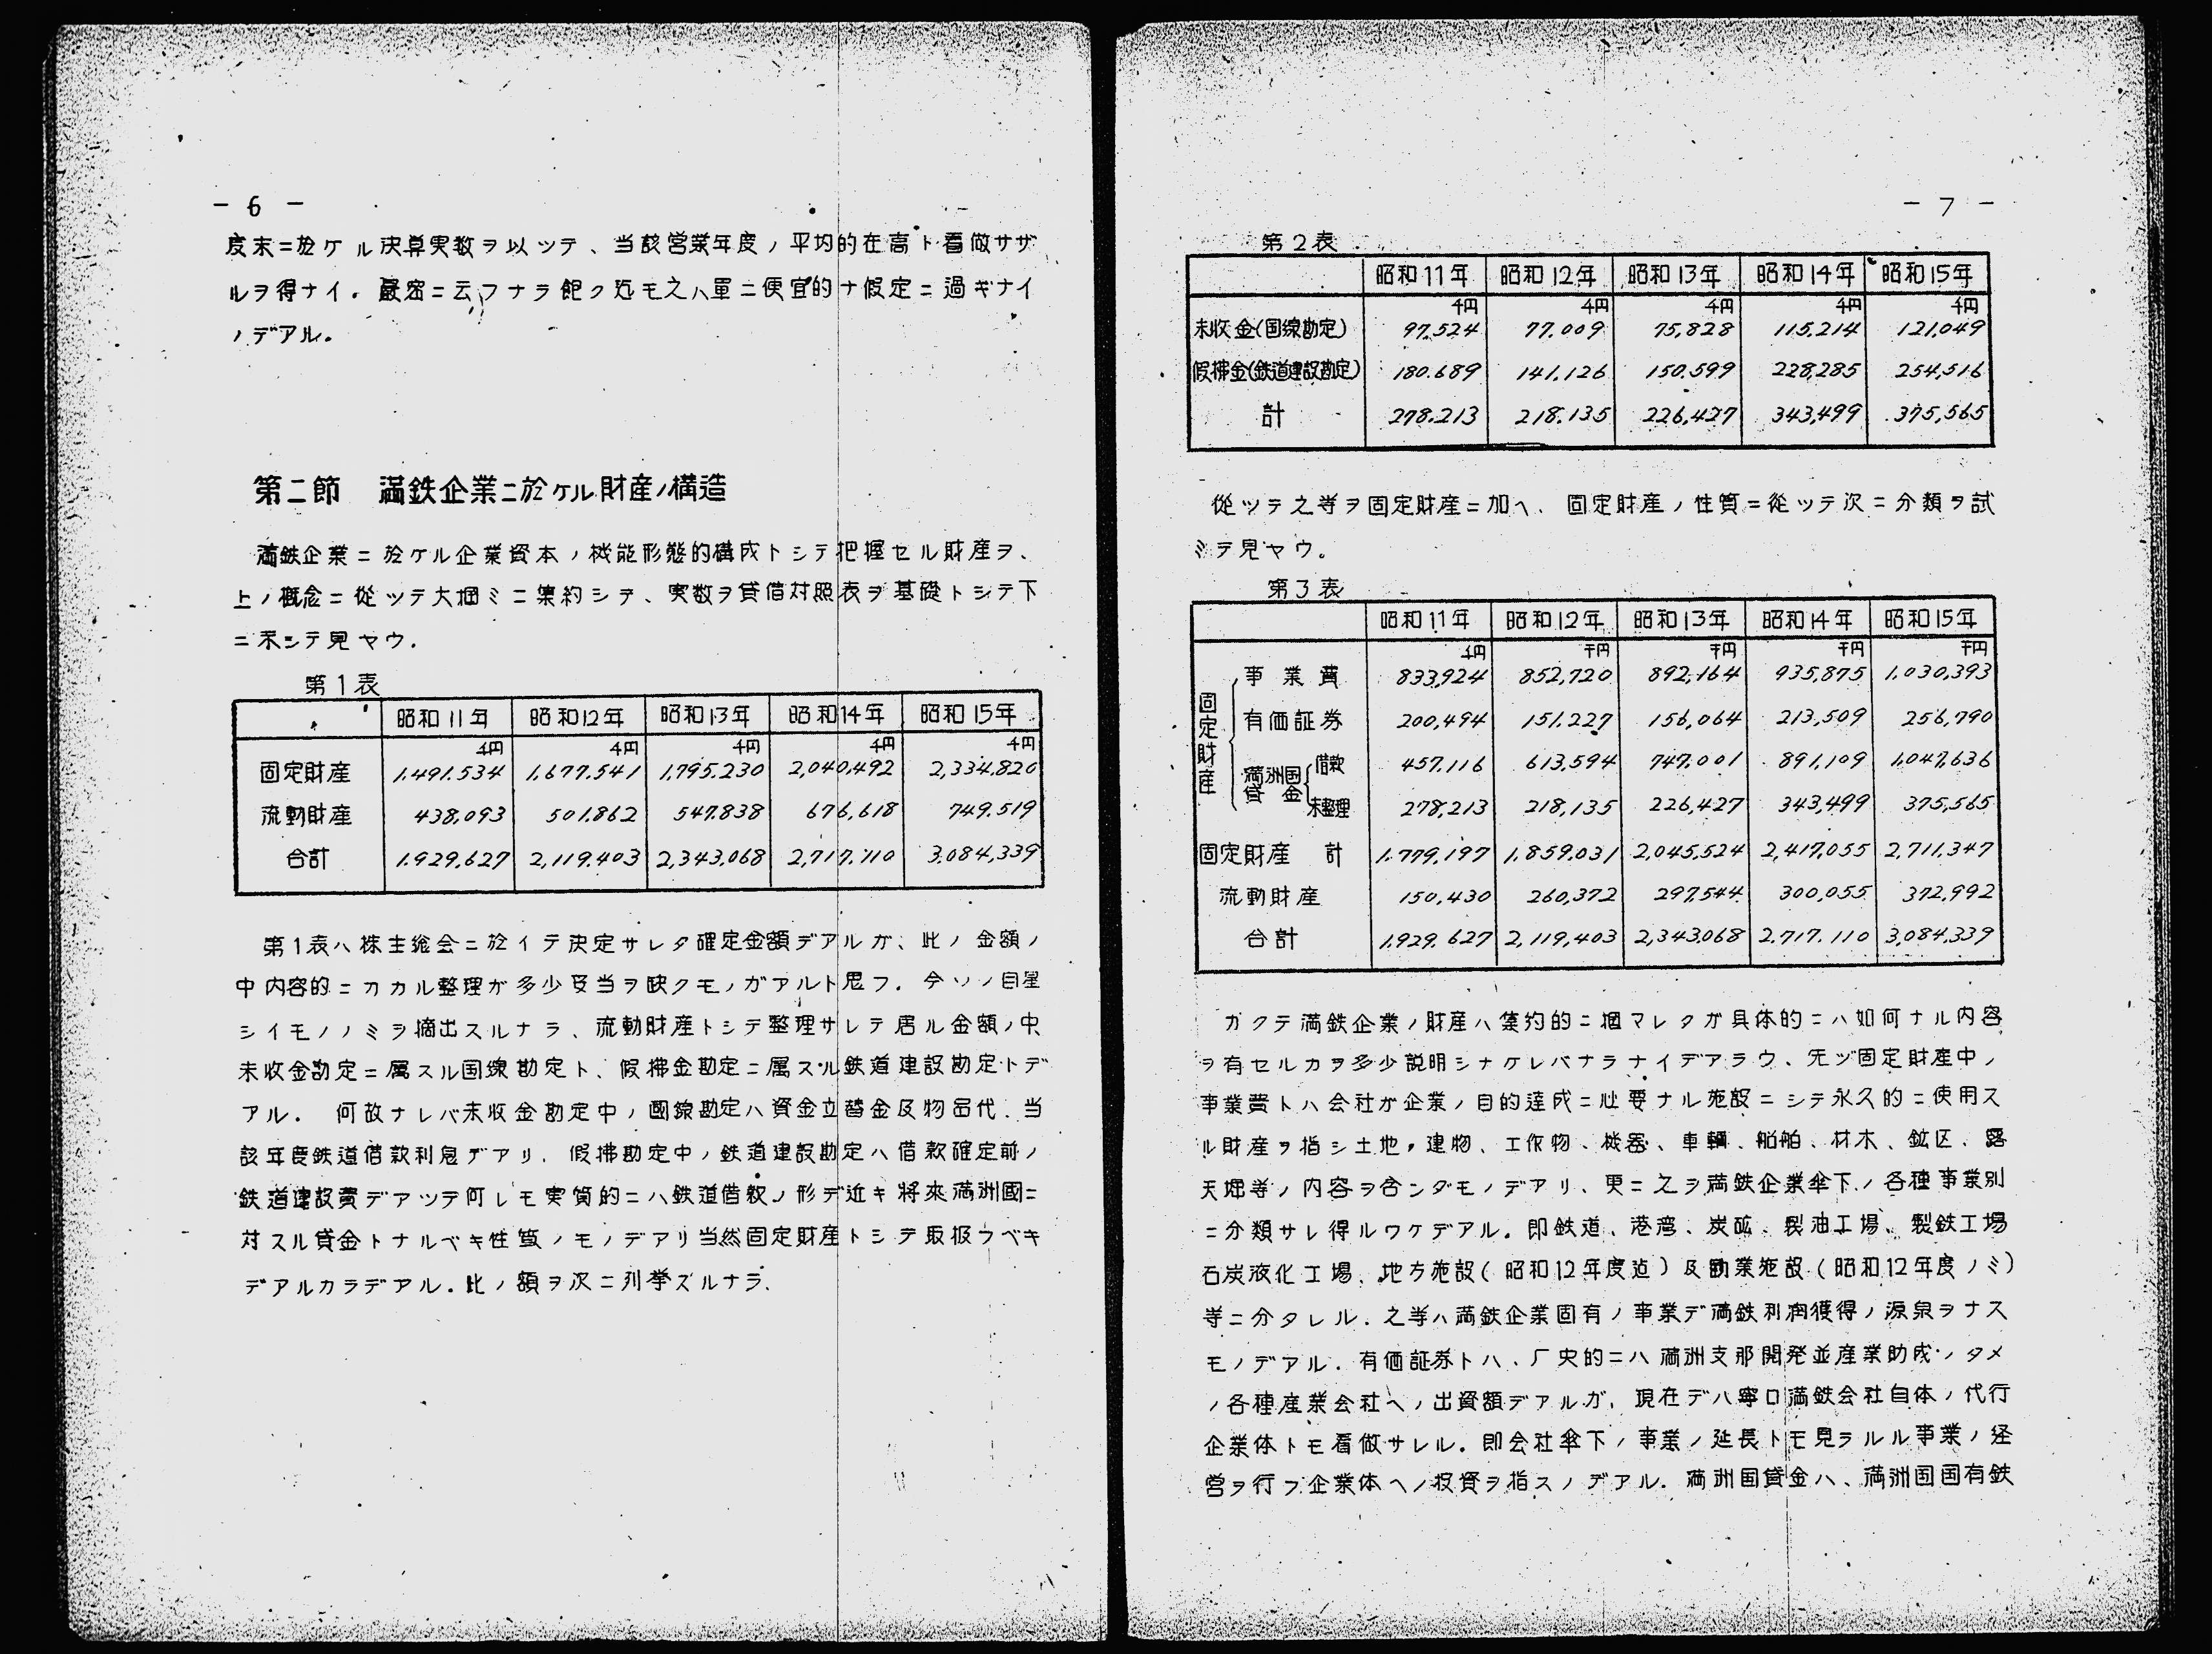 - 6 -
度末ニ於ケル決算実数ヲ以ツテ、当該営業年度ノ平均的在高ト看做サザ
ルヲ得ナイ。厳密ニ云フナラ飽ク迄モ之ハ単ニ便宜的ナ假定ニ過ギナイ
ノデアル。
第二節　満鉄企業ニ於ケル財産ノ構造
満鉄企業ニ於ケル企業資本ノ機能形態的構成トシテ把握セル財産ヲ、
上ノ概念ニ從ツテ大掴ミニ集約シテ、実数ヲ貸借対照表ヲ基礎トシテ下
ニ示シテ見ヤウ.
第1表
昭和11年 昭和12年 昭和13年 昭和14年 昭和15年
千円 千円 千円 千円 千円
固定財産 1,491,534 1,677,541 1,795,230 2,040,492 2,334,820
流動財産 438,093 501,862 547,838 676,618 749,519
合計 1,929,627 2,119,403 2,343,068 2,717,110 3,084,339
第1表ハ株主総会ニ於イテ決定サレタ確定金額デアルガ、此ノ金額ノ
中内容的ニカカル整理が多少妥当ヲ欠クモノガアルト思フ. 今ソノ目星
シイモノノミヲ摘出スルナラ、流動財産トシテ整理サレテ居ル金額ノ中
未收金勘定ニ属スル国線勘定ト、假拂金勘定ニ属スル鉄道建設勘定トデ
アル. 何故ナレバ未收金勘定中ノ國線勘定ハ資金立替金及物品代、当
該年度鉄道借款利息デアリ、假拂勘定中ノ鉄道建設勘定ハ借款確定前ノ
鉄道建設費デアツテ何レモ実質的ニハ鉄道借款ノ形デ近キ将來満洲國ニ
対スル貸金トナルベキ性質ノモノデアリ当然固定財産トシテ取扱フベキ
デアルカラデアル. 此ノ額ヲ次ニ列挙スルナラ、
- 7 -
第2表
昭和11年 昭和12年 昭和13年 昭和14年 昭和15年
千円 千円 千円 千円 千円
未收金(国線勘定) 97,524 77,009 75,828 115,214 121,049
假拂金(鉄道建設勘定) 180,689 141,126 150,599 228,285 254,516
計 278,213 218,135 226,427 343,499 375,565
從ツテ之等ヲ固定財産ニ加ヘ、固定財産ノ性質ニ從ツテ次ニ分類ヲ試
ミテ見ヤウ。
第3表
昭和11年 昭和12年 昭和13年 昭和14年 昭和15年
千円 千円 千円 千円 千円
固定財産
事業費 833,924 852,720 892,164 935,875 1,030,393
有価証券 200,494 151,227 156,064 213,509 256,790
満洲国貸金 借款 457,116 613,594 747,001 891,109 1,047,636
未整理 278,213 218,135 226,427 343,499 375,565
固定財産 計 1,779,197 1,859,031 2,045,524 2,417,055 2,711,347
流動財産 150,430 260,372 297,544 300,055 372,992
合計 1,929,627 2,119,403 2,343,068 2,717,110 3,084,339
カクテ満鉄企業ノ財産ハ集約的ニ掴マレタガ具体的ニハ如何ナル内容
ヲ有セルカヲ多少説明シナケレバナラナイデアラウ、先ヅ固定財産中ノ
事業費トハ会社が企業ノ目的達成ニ必要ナル施設ニシテ永久的ニ使用ス
ル財産ヲ指シ土地、建物、工作物、機器、車輛、船舶、材木、鉱区、露
天堀等ノ内容ヲ含ンダモノデアリ、更ニ之ヲ満鉄企業傘下ノ各種事業別
ニ分類サレ得ルワケデアル. 即鉄道、港湾、炭砿、製油工場、製鉄工場
石炭液化工場、地方施設(昭和12年度迄)及勧業施設(昭和12年度ノミ)
等ニ分タレル. 之等ハ満鉄企業固有ノ事業デ満鉄利潤獲得ノ源泉ヲナス
モノデアル. 有価証券トハ、厂史的ニハ満洲支那開発並産業助成ノタメ
ノ各種産業会社ヘノ出資額デアルガ、現在デハ寧ロ満鉄会社自体ノ代行
企業体トモ看做サレル. 即会社傘下ノ事業ノ延長トモ見ラルル事業ノ経
営ヲ行フ企業体ヘノ投資ヲ指スノデアル. 満洲国貸金ハ、満洲国国有鉄